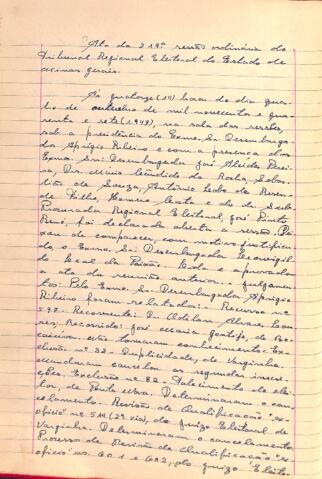 Ata da 219ª sessão ordinária do
Tribunal Regional Eleitoral do Estado de
Minas Gerais.
Às quatorze (14) horas do dia qua-
tro de outubro de mil novecentos e qua-
renta e sete (1947), na sala das sessões,
sob a presidência do Exmo. Sr. Desembarga-
dor Aprígio Ribeiro e com a presença dos
Exmos. Srs. Desembargador José Alcides Perei-
ra, Drs. Maria Cândido da Rocha, Sebas-
tião de Souza, Antônio Lobo de Resen-
de Filho, e do dr. Sub
Procurador Regional Eleitoral, José Pinto
foi declarada aberta a sessão. Dei-
xou de comparecer, com motivo justifica-
do, o Exmo. Sr. Desembargador Leovigil-
do Leal da Paixão. Lida e aprovada
a ata da reunião anterior. Julgamen-
tos: Pelo Exmo. Sr. Desembargador Aprígio
Ribeiro foram relatados: Recurso nº
598. Recorrente: Dr. Alvares
Recorrido: José Maria de
Não tomaram conhecimento. Ex-
clusão nº 32. Duplicidade, de Varginha.
Mandaram cancelar as segundas inscri-
ções. Exclusão nº 82. Falecimento de elei-
tor, de Ponte Nova. Determinaram o can-
celamento. Revisão de Qualificação "ex-
officio" nº 511 (2ª via), do juízo Eleitoral de
Varginha. Determinaram o cancelamento
Processo de Revisão de Qualificação "ex-
officio" nº 601 e 602, do juízo Eleito-